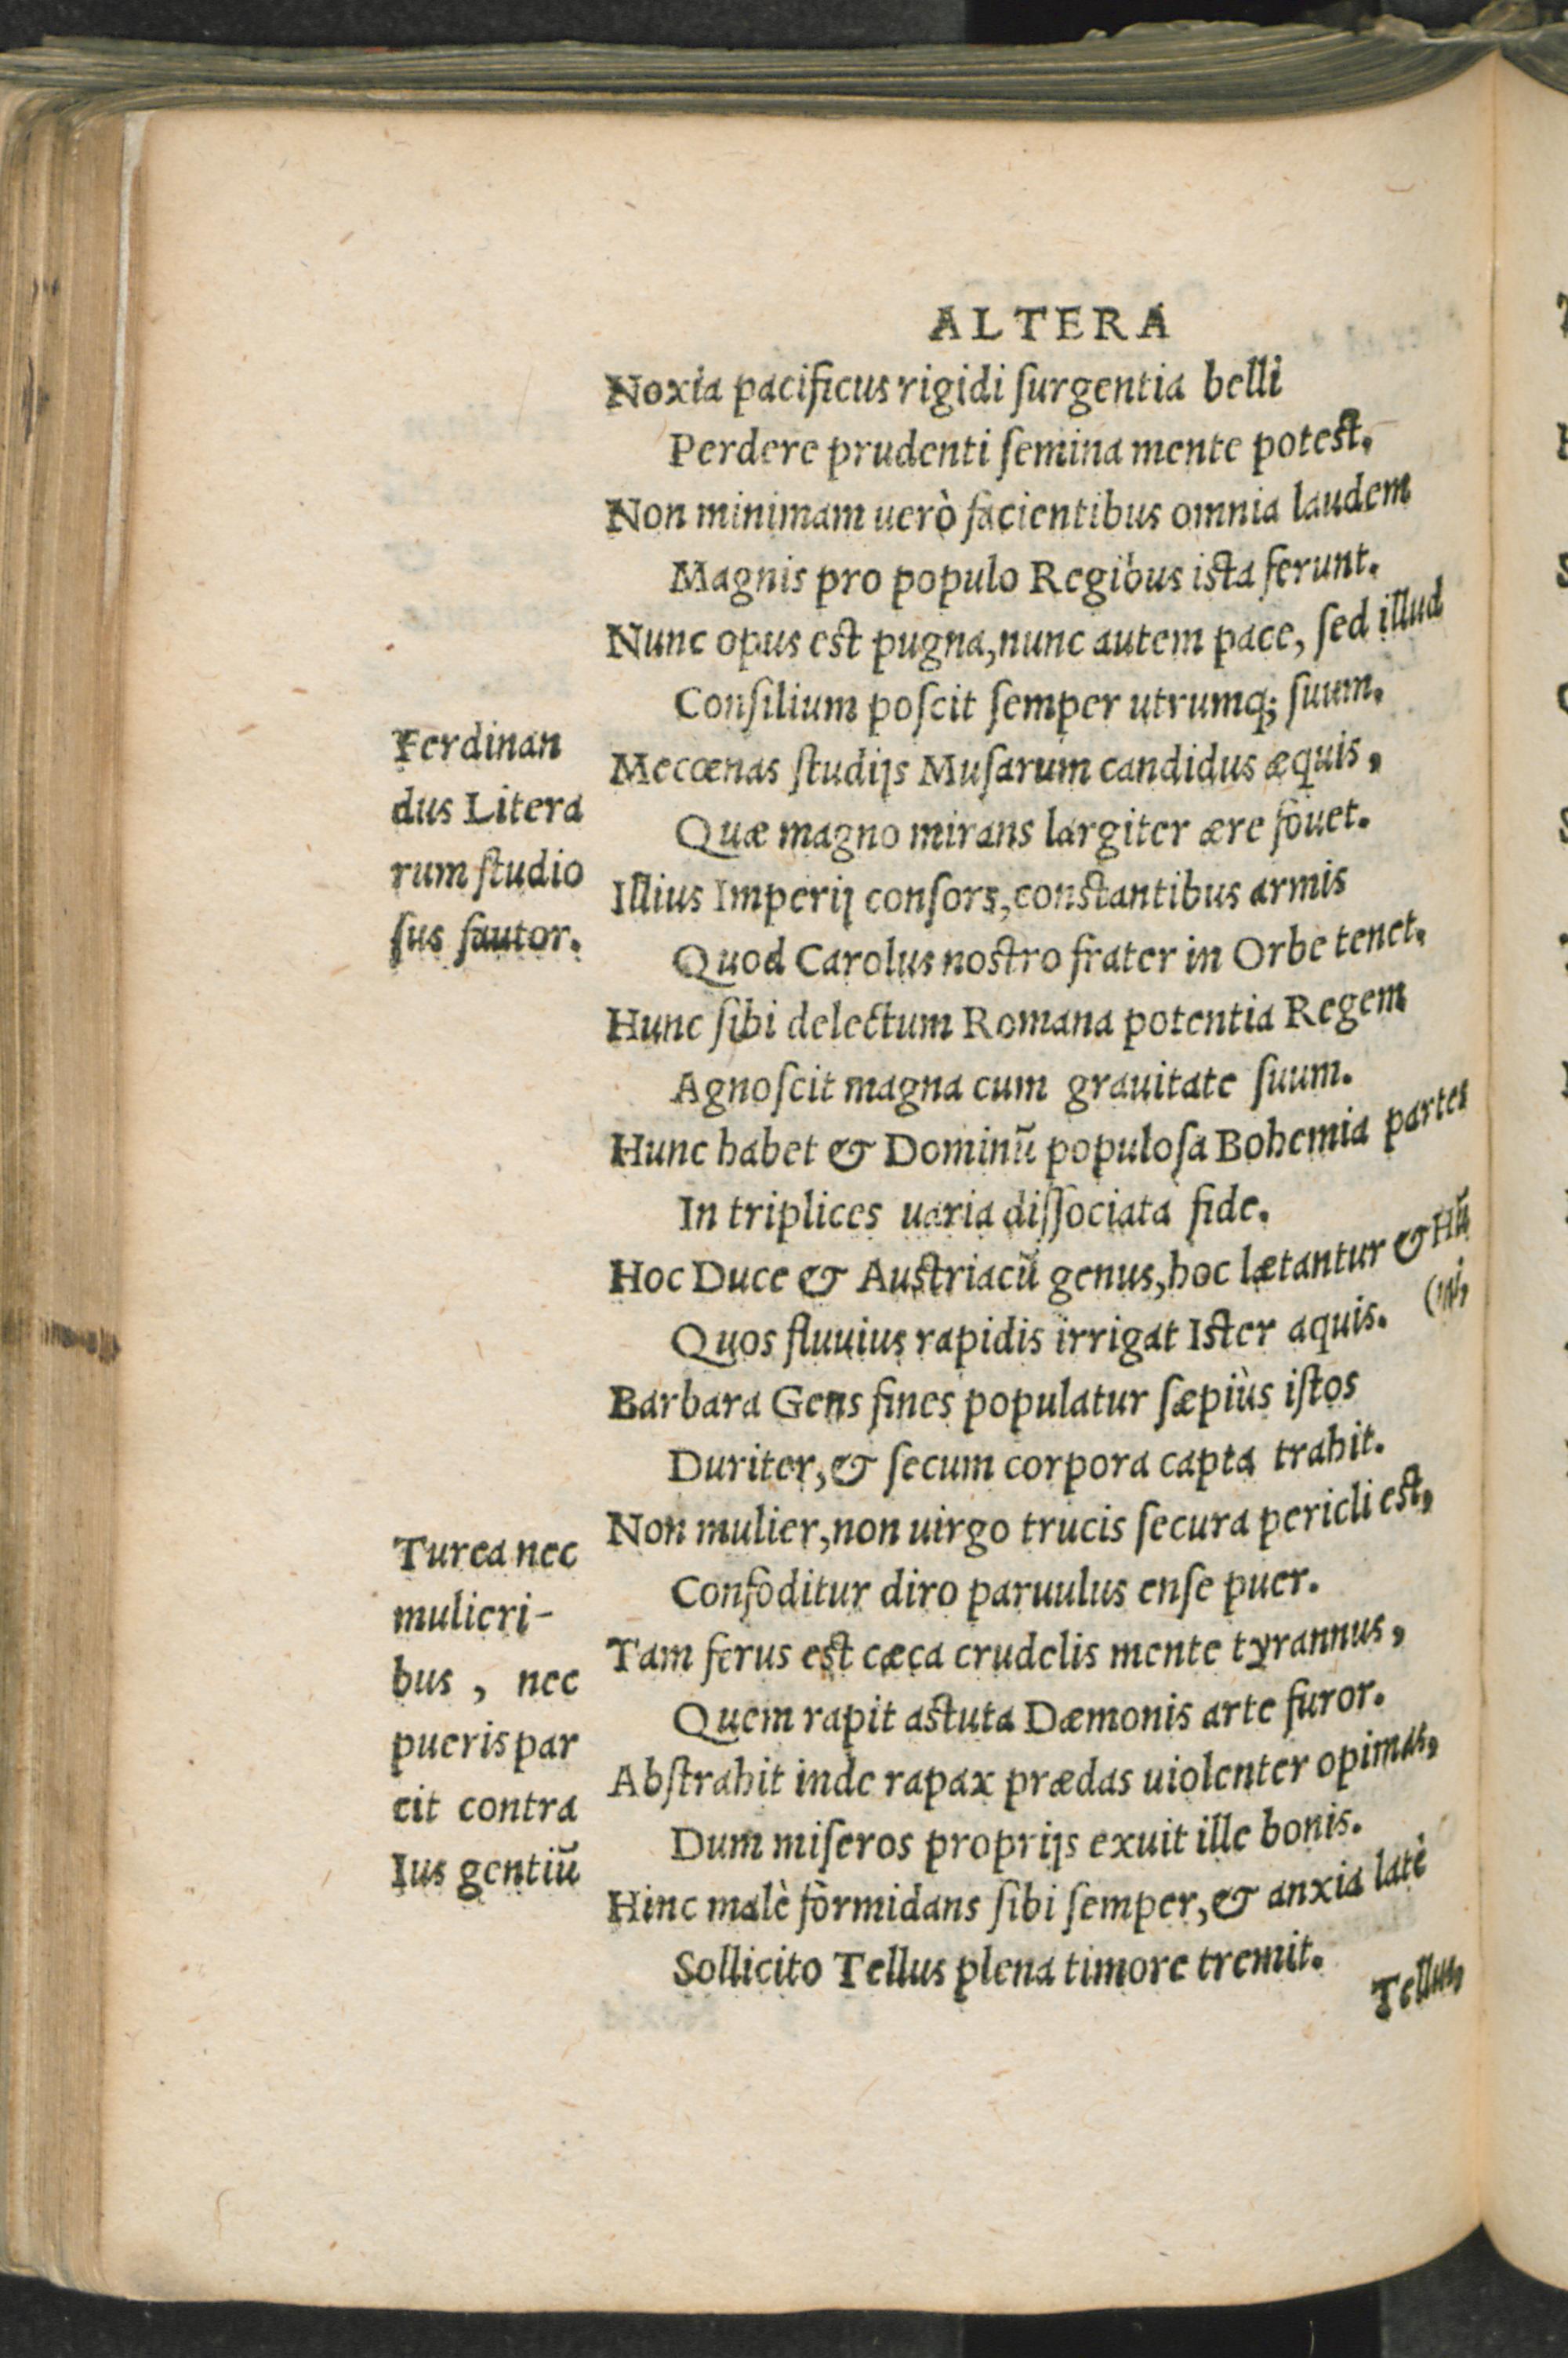 ALTERA
Noxia pacificus rigidi ſurgentia belli
Perdere prudenti ſemina mente poteſt,
Non minimam uerò facientibus omnia laudem
Magnis pro populo Regibus iſta ferunt.
Nunc opus eſt pugna, nunc autem pace, ſed illud
Conſilium poſcit ſemper utrumq; ſuum.
Mecœnas ſtudijs Muſarum candidus æquis,
Quæ magno mirans largiter ære fouet.
Illius Imperij conſors, conſtantibus armis
Quod Carolus noſtro frater in Orbe tenet.
Hunc ſibi delectum Romana potentia Regem
Agnoſcit magna cum grauitate ſuum.
Hunc habet & Dominū populoſa Bohemia partes
In triplices uaria diſſociata fide.
Hoc Duce & Auſtriacū genus, hoc lætantur & Hū
(ni,
Quos fluuius rapidis irrigat Iſter aquis.
Barbara Gens fines populatur ſæpiùs iſtos
Duriter, & ſecum corpora capta trahit.
Non mulier, non uirgo trucis ſecura pericli eſt,
Confoditur diro paruulus enſe puer.
Tam ferus eſt cæca crudelis mente tyrannus,
Quem rapit aſtuta Dæmonis arte furor.
Abſtrahit inde rapax prædas uiolenter opimas,
Dum miſeros proprijs exuit ille bonis.
Hinc malè formidans ſibi ſemper, & anxia latè
Sollicito Tellus plena timore tremit.
Tellus,
Ferdinan
dus Litera
rum ſtudio
ſus fautor.
Turca nec
mulieri-
bus, nec
pueris par
cit contra
Ius gentiū